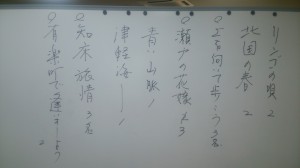 リンゴの唄 2
北国の春 2
上を向いて歩こう 3名
瀬戸の花嫁 3
青い山脈 1
津軽海― 1
知床旅情 3名
有楽町で逢いましょう 2